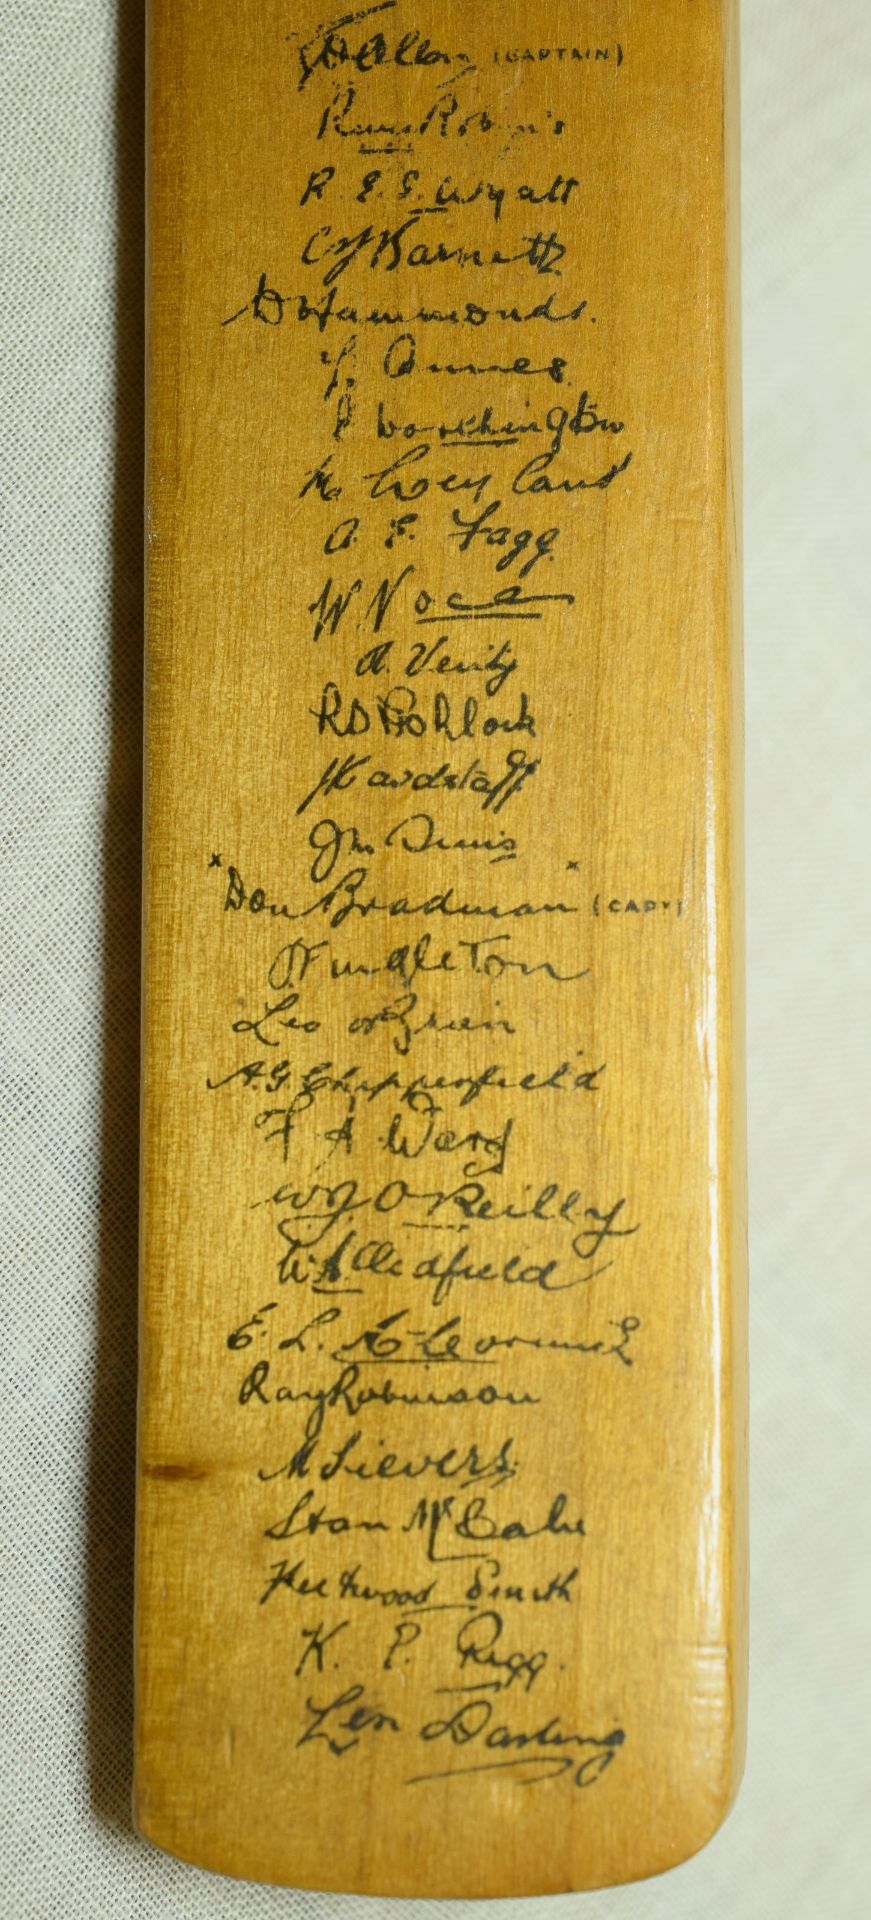 Allen (CAPTAIN)
Robins
R. E. S. Wyatt
C J Barnett
Hammonds.
L. Ames
Worthington
M Leyland
A. E. Fagg.
W Voce
A. Verity
R D
J Hardstaff
Jim Sims
"Don Bradman" (CAPT)
J. Fingleton
Leo O'Brien
A. G Chipperfield
F A Ward
W J O'Reilly
W A Oldfield
E. L. McCormick
Ray Robinson
M Sievers.
Stan McCabe
Fleetwood Smith
K. E. Rigg.
Len Darling